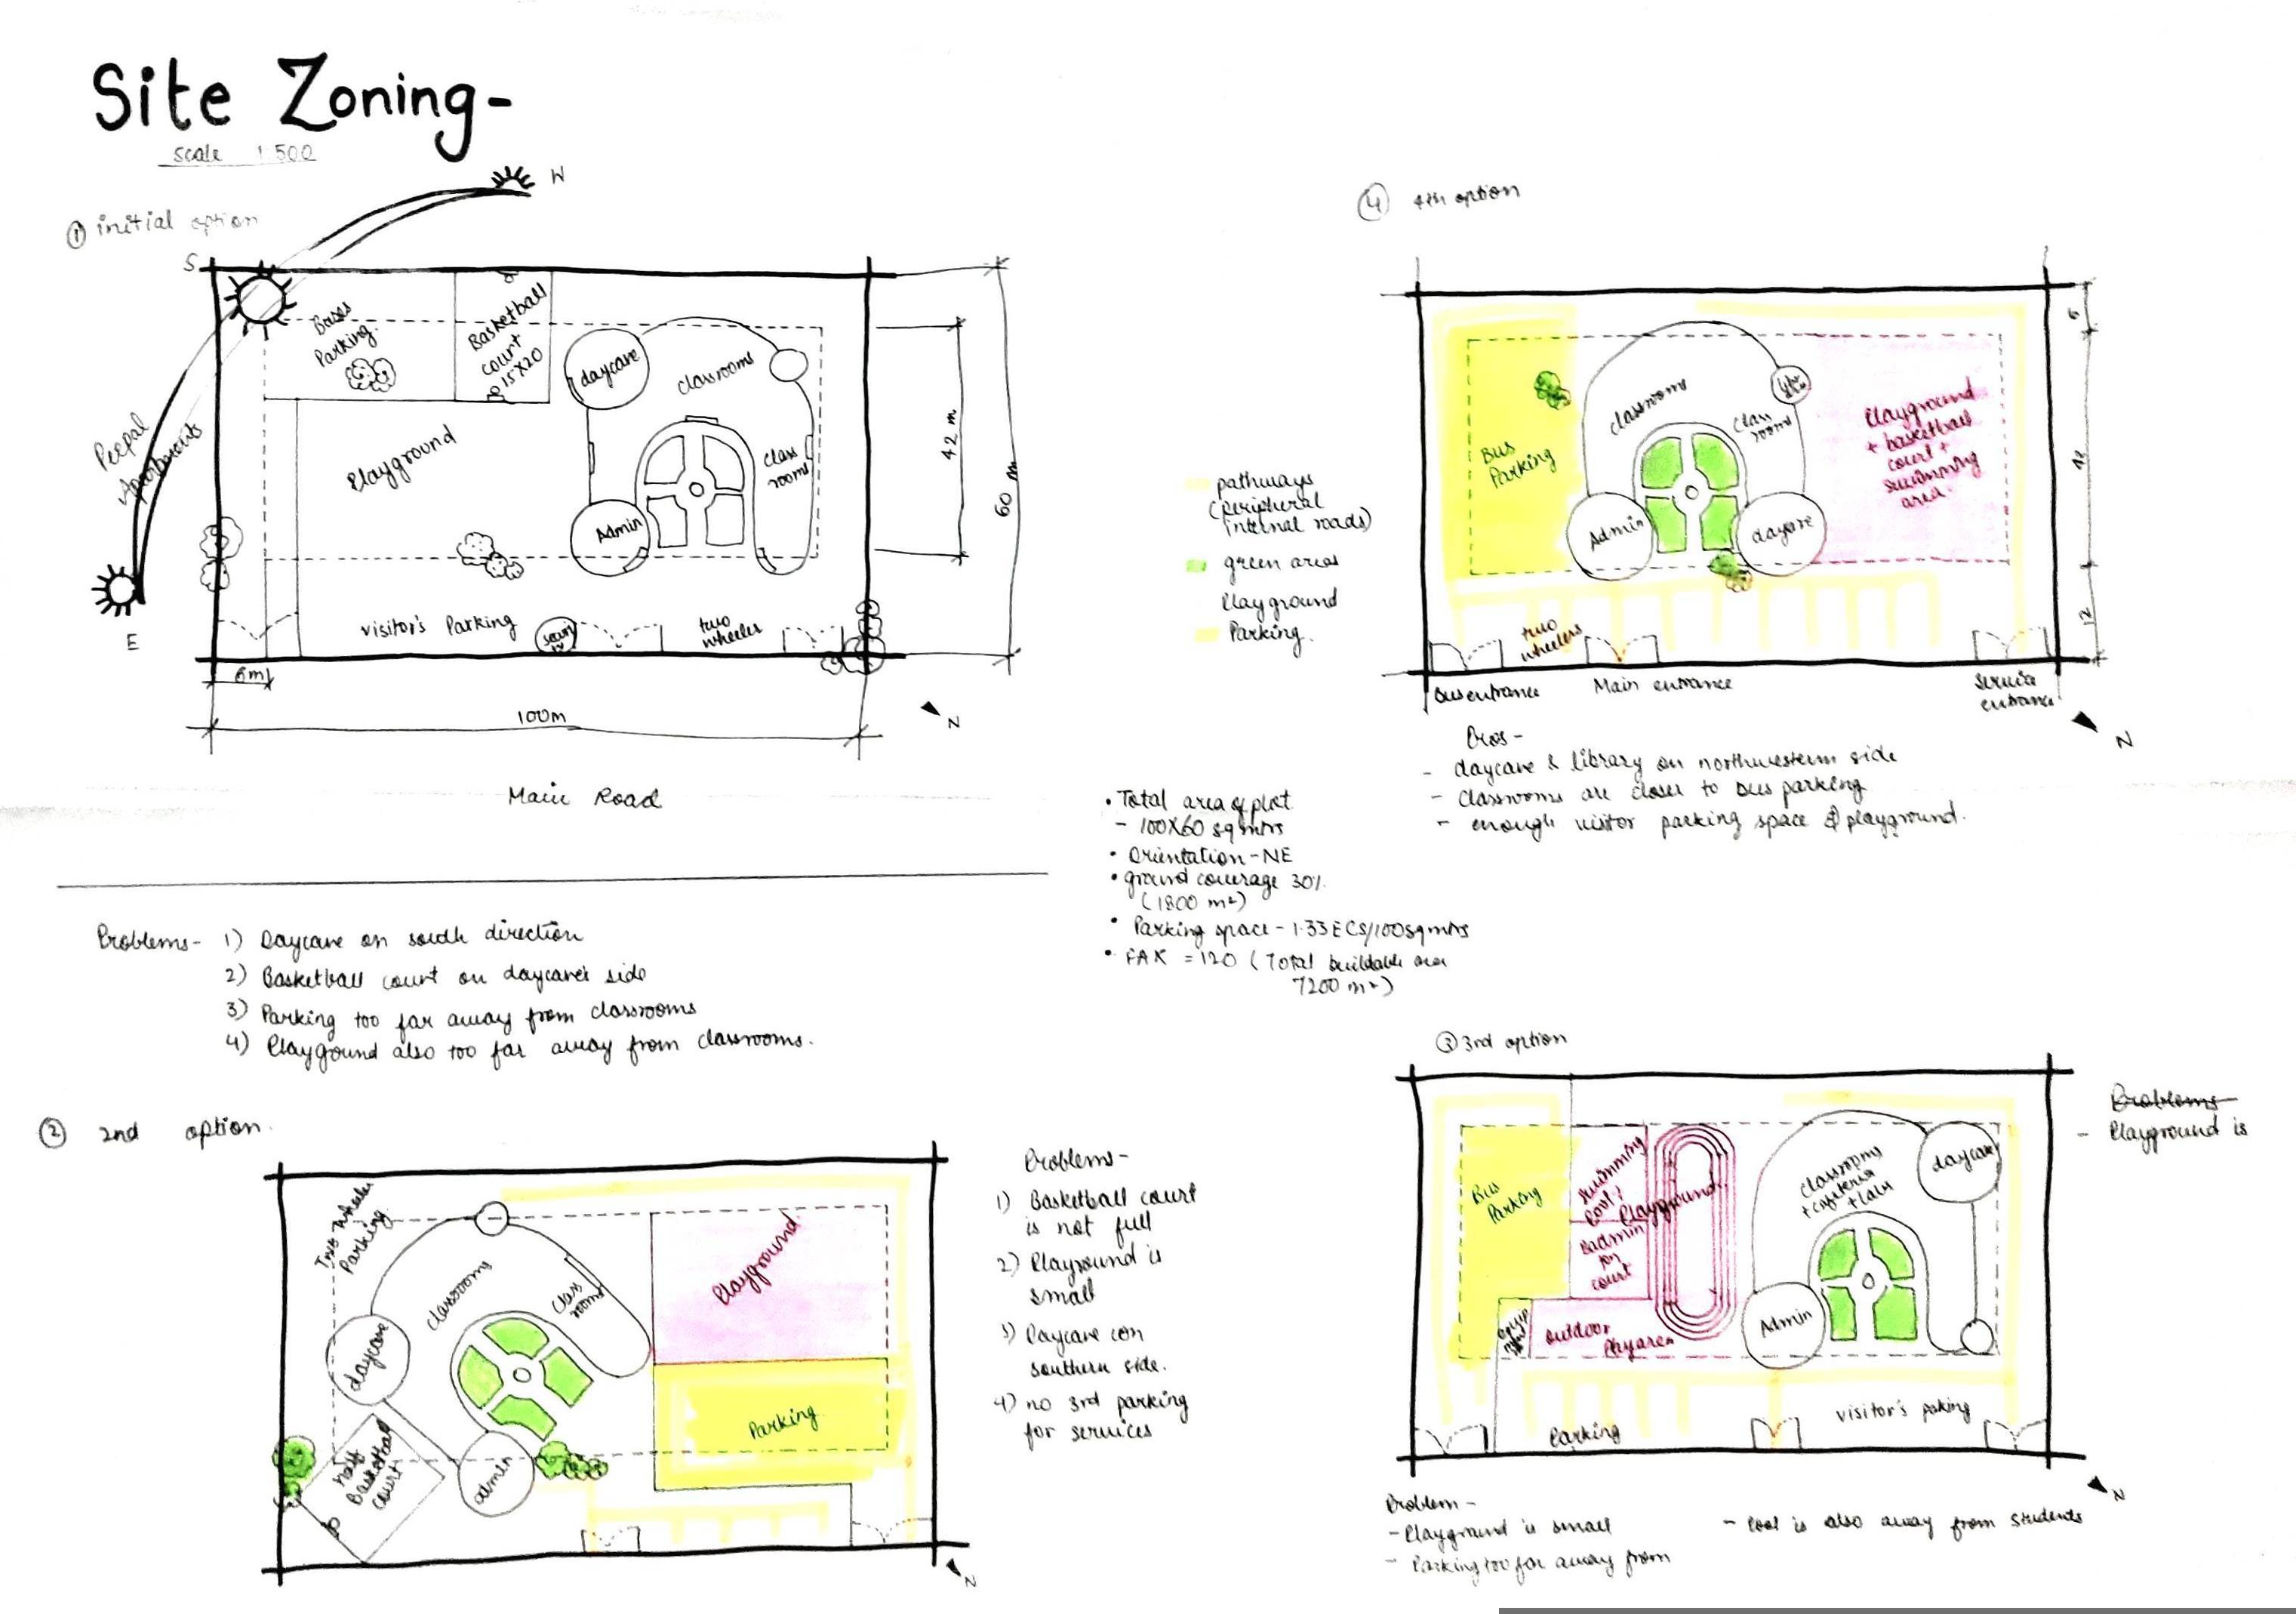 Site Zoning-
scale 1:500
① initial option
W
S
E
Peepal
Apartments
Buses
Parking
Basketball
court
15X20
daycare
classrooms
class
rooms
Playground
Admin
visitor's Parking
two
wheelers
42 m
60 m
6m
100m
N
Main Road
④ 4th option
Bus
Parking
classrooms
class
rooms
Admin
daycare
Playground
+ basketball
court +
swimming
area.
6
42
12
two
wheelers
Bus entrance
Main entrance
Service
entrance
N
Pros -
- daycare & library on northwestern side
- classrooms are closer to bus parking
- enough visitor parking space & playground.
pathways
(peripheral
internal roads)
green areas
Playground
Parking.
• Total area of plot
- 100X60 sq mtrs
• Orientation - NE
• ground coverage 30%
(1800 m²)
• Parking space - 1.33 ECS/100 sq mtrs
• FAR = 120 (Total buildable area
7200 m²)
Problems- 1) Daycare on south direction
2) Basketball court on daycare's side
3) Parking too far away from classrooms
4) Playground also too far away from classrooms.
② 2nd option.
Two Wheeler
Parking
classrooms
class
rooms
daycare
Half
Basketball
court
admin
Playground
Parking
N
Problems-
1) Basketball court
is not full
2) Playground is
small
3) Daycare on
southern side.
4) no 3rd parking
for services
③ 3rd option
Bus
Parking
Swimming
Pool
Playground
Badmin
ton
court
outdoor
Playarea
classrooms
+ cafeteria
+ labs
daycare
Admin
Parking
visitor's paking
N
Problems
- Playground is
Problem -
- Playground is small
- Parking too far away from
- Pool is also away from students